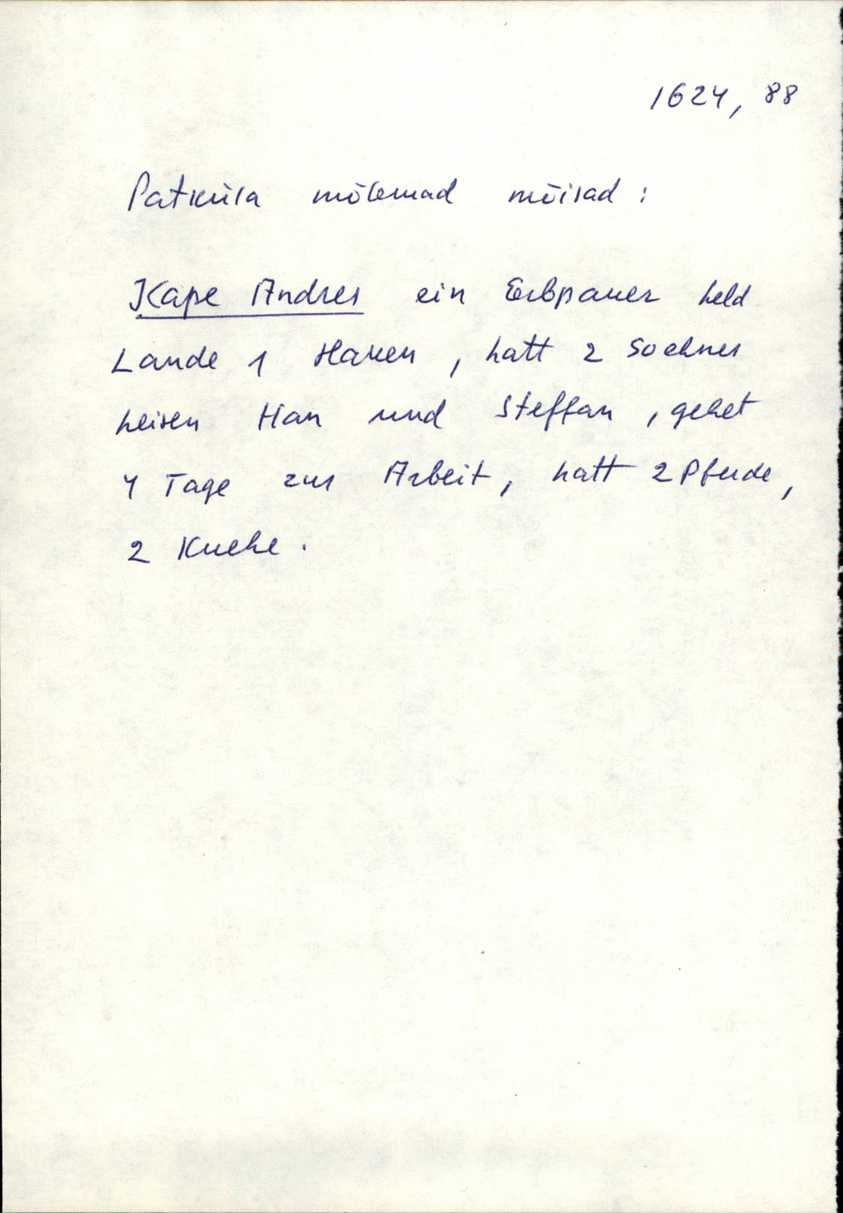 1624, 88
Patküla mõlemad mõisad:
Kape Andres ein Erbpauer held
Lande 1 Haken, hatt 2 Soehnes
heisen Han und Steffan, gehet
4 Tage zur Arbeit, hatt 2 Pferde,
2 Kuehe.